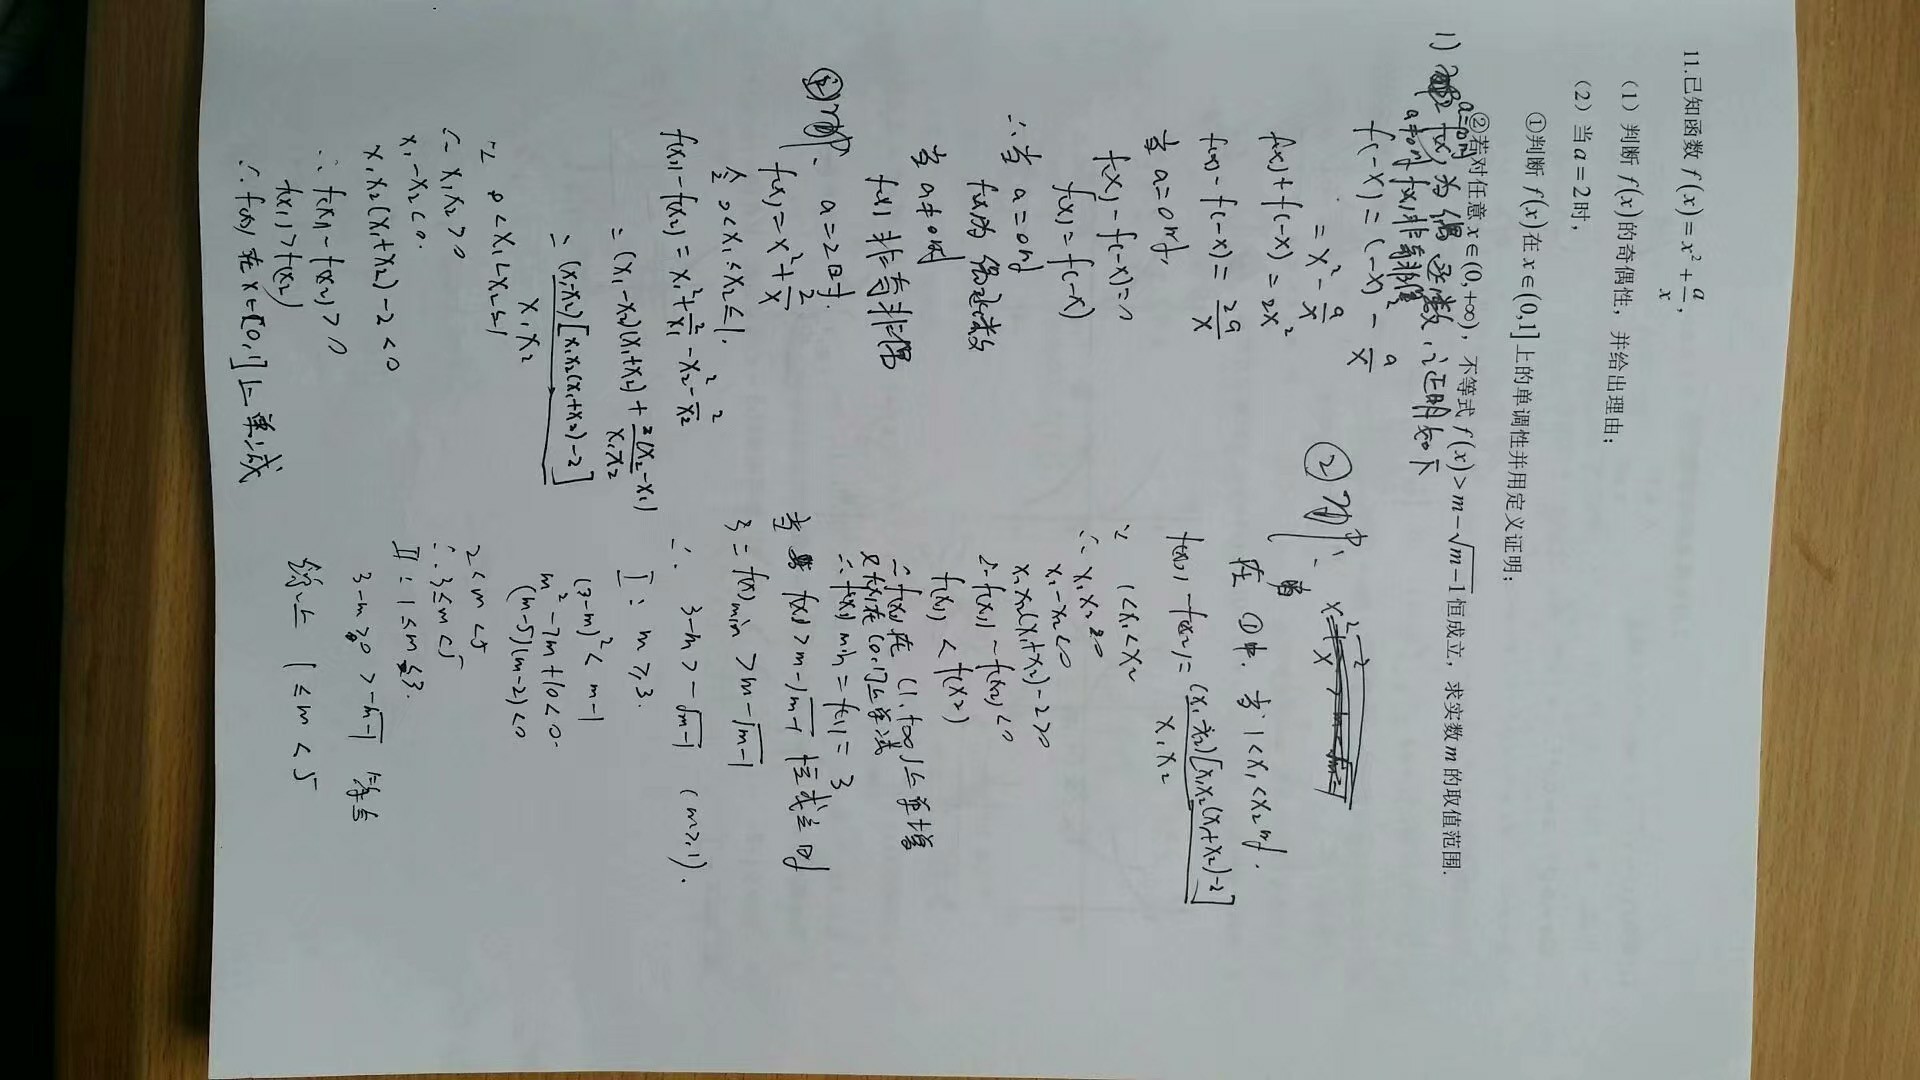 11.已知函数 f(x)=x²+a/x,
(1) 判断 f(x) 的奇偶性，并给出理由;
(2) 当 a=2 时,
①判断 f(x) 在 x∈(0,1] 上的单调性并用定义证明;
②若对任意 x∈(0,+∞)，不等式 f(x)>m-√(m-1) 恒成立，求实数 m 的取值范围.
1) a=0时 f(x)为偶函数,证明如下
a≠0时 f(x)非奇非偶
f(-x)=(-x)²-a/x
=x²-a/x
f(x)+f(-x)=2x²
f(x)-f(-x)=2a/x
当 a=0时,
f(x)-f(-x)=0
f(x)=f(-x)
∴当 a=0时
f(x)为偶函数
当 a≠0时
f(x) 非奇非偶
a=2时
f(x)=x²+2/x
令 0<x₁≤x₂≤1.
f(x₁)-f(x₂)=x₁²+2/x₁-x₂²-2/x₂
=(x₁-x₂)(x₁+x₂)+2(x₂-x₁)/x₁x₂
=(x₁-x₂)[x₁x₂(x₁+x₂)-2]/x₁x₂
∵ 0<x₁<x₂≤1
∴ x₁x₂>0
x₁-x₂<0.
x₁x₂(x₁+x₂)-2<0
∴ f(x₁)-f(x₂)>0
f(x₁)>f(x₂)
∴ f(x) 在 x∈[0,1]上单减
②
在①中,当 1<x₁<x₂时.
f(x₁)-f(x₂)=(x₁-x₂)[x₁x₂(x₁+x₂)-2]/x₁x₂
∵ 1<x₁<x₂
∴ x₁x₂>0
x₁-x₂<0
x₁x₂(x₁+x₂)-2>0
∴ f(x₁)-f(x₂)<0
f(x₁)<f(x₂)
∴ f(x)在(1,+∞)上单增
又f(x)在(0,1]上单减
∴ f(x)min=f(1)=3
当 f(x)>m-√(m-1) 恒成立时
3=f(x)min>m-√(m-1)
∴ 3-m>-√(m-1) (m≥1).
I: m≥3.
(3-m)²<m-1
m²-7m+10<0.
(m-5)(m-2)<0
2<m<5
∴ 3≤m<5
II: 1≤m≤3.
3-m≥0>-√(m-1) 
综上 1≤m<5